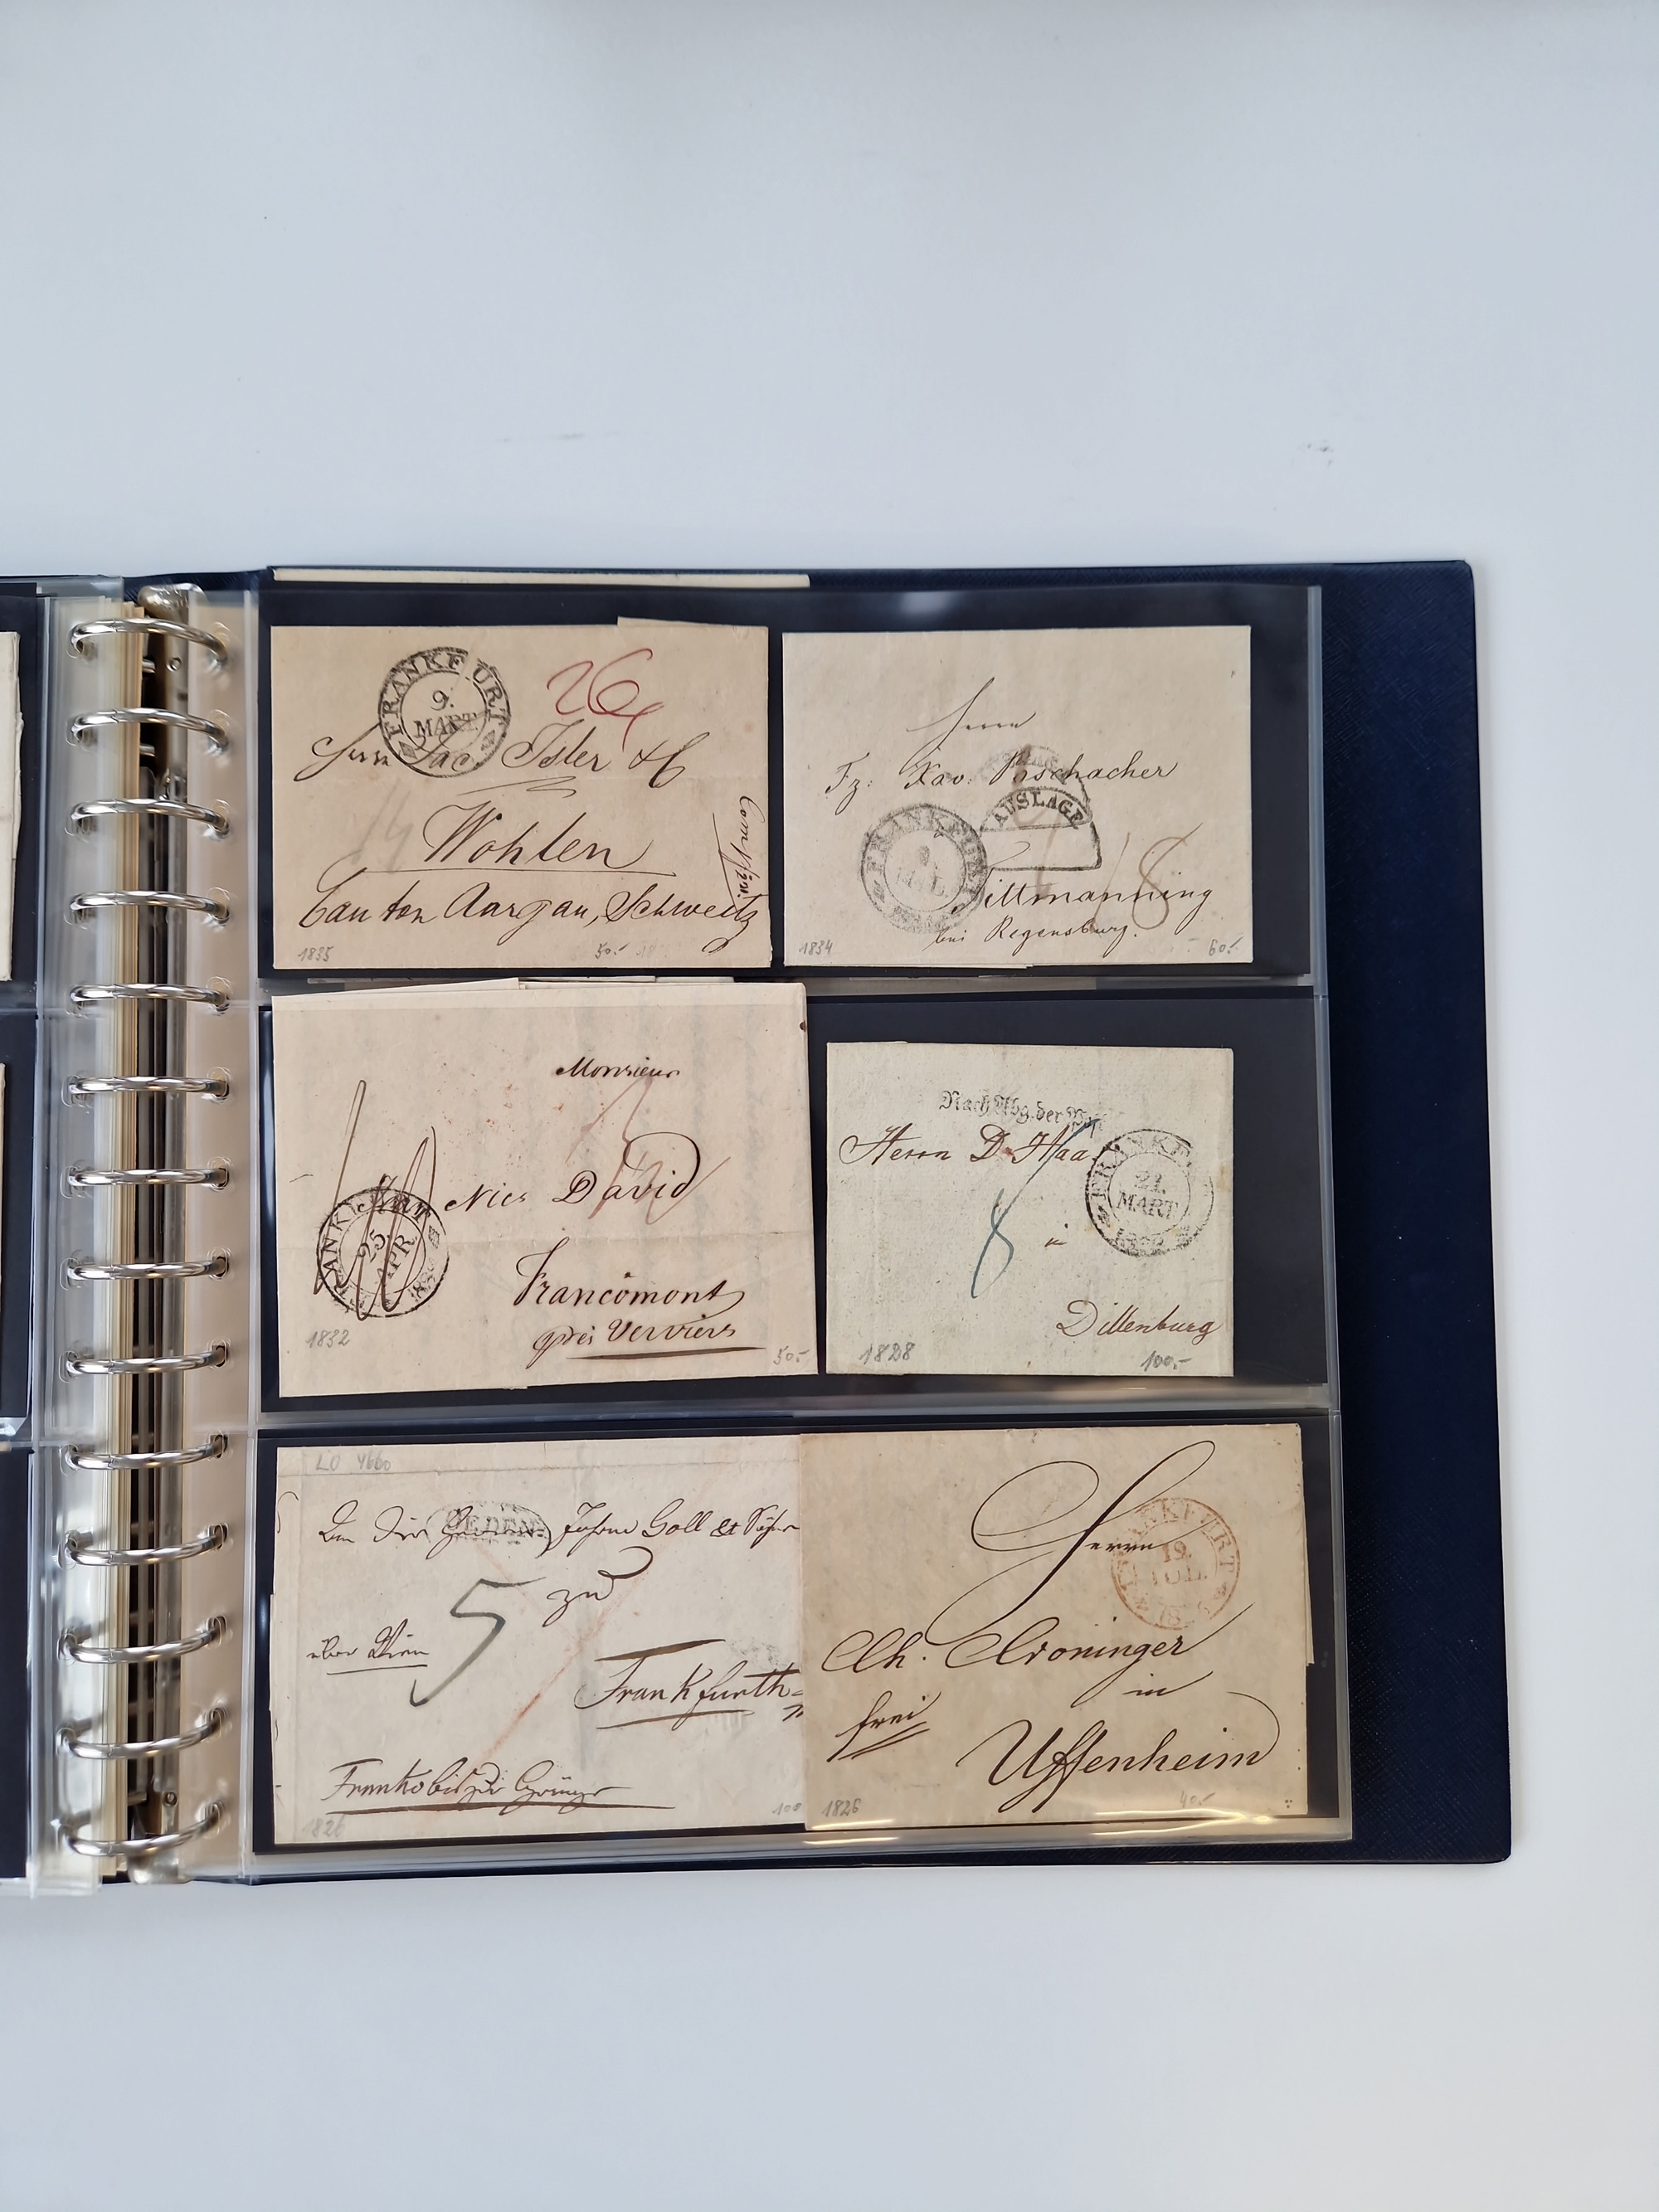 FRANKFURT
9.
MART
26
Jac. Isler & C
14
Wohlen
Canton Aargau, Schweitz
1835
50.-
Herrn
Fz: Xav:
AUSLAGE
FRANKFURT
18
Tittmanning
bei Regensburg.
1834
60.-
Monsieur
Nics David
25
APR
Francomont
près Verviers
1832
50.-
Nach Abg. der
Herrn D. Haas
FRANKF
21.
MART
8
in
Dillenburg
1828
100.-
LO 4660
Goll & Söhne
zu
5
über Wien
Frankfurth
Franko bis zur Gränze
182
100
Herrn
FRANKFURT
19.
JUL.
Ch. Croninger
in
frei
Uffenheim
1826
40.-